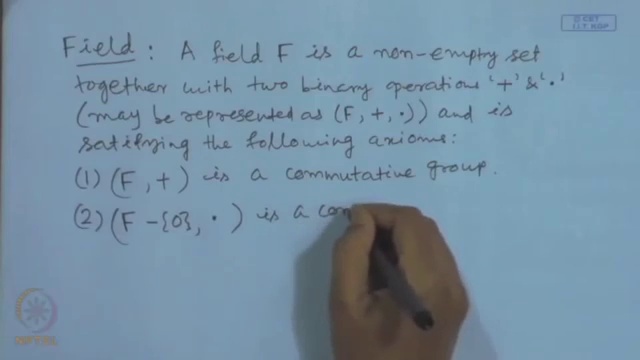 © CET
I.I.T. KGP
Field : A field F is a non-empty set
together with two binary operations '+' & '.'
(may be represented as (F, +, .)) and is
satisfying the following axioms:
(1) (F, +) is a commutative group.
(2) (F -{0}, . ) is a com
NPTEL